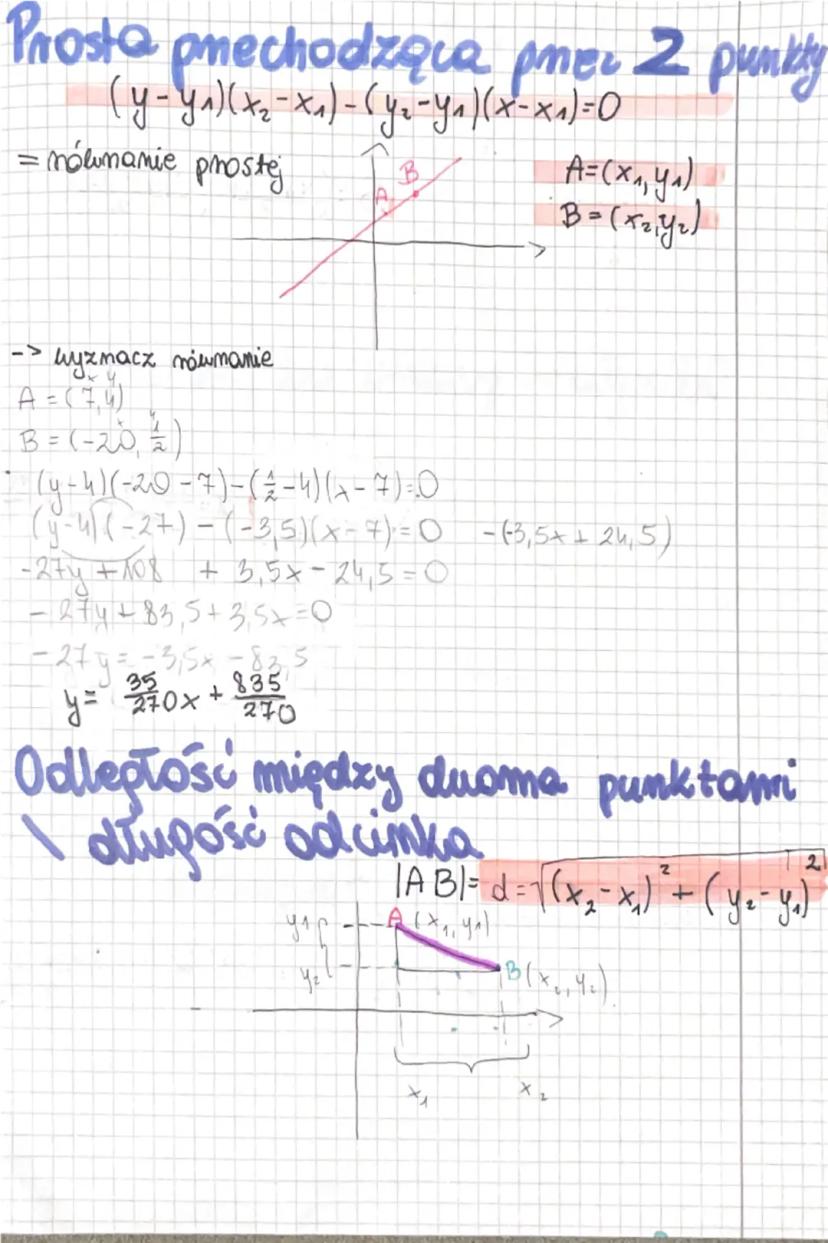 Prosta przechodząca przez 2 punkty
(y-y₁)(x₂-x₁)-(y₂-y₁)(x-x₁)=0
= równanie prostej
A B
A=(x₁,y₁)
B=(x₂,y₂)
-> wyznacz równanie
x y
A=(7,4)
x y
B=(-20, 1/2)
(y-4)(-20-7)-(1/2-4)(x-7)=0
(y-4)(-27)-(-3,5)(x-7)=0 -(-3,5x+24,5)
-27y+108 + 3,5x-24,5=0
-27y+83,5+3,5x=0
-27y=-3,5x-83,5
y= 35/270x + 835/270
Odległość między dwoma punktami
\ długość odcinka
|AB|= d=√(x₂-x₁)²+(y₂-y₁)²
y₁ A (x₁,y₁)
y₂ B(x₂,y₂)
x₁ x₂